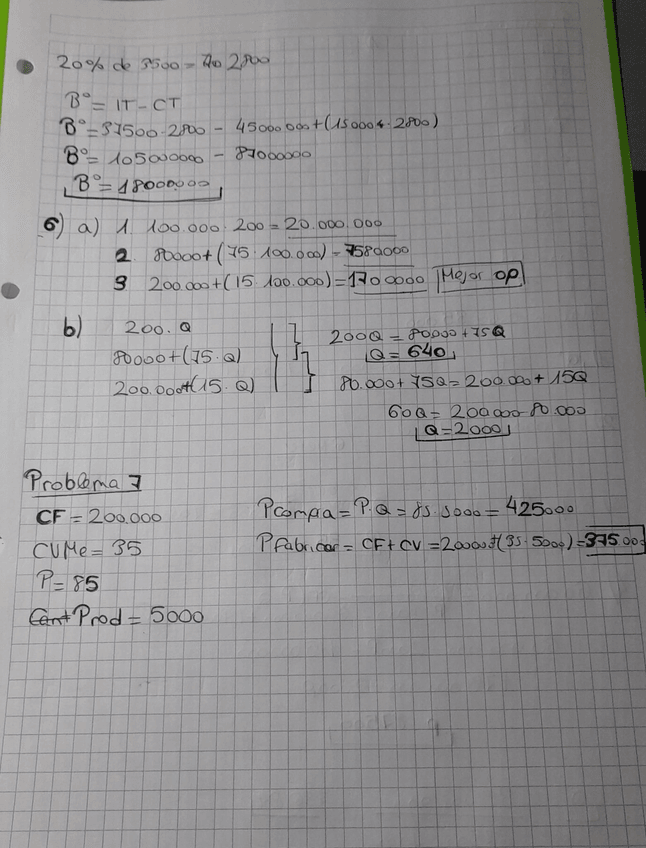 20% de 3500 = 2800
Bº = IT - CT
Bº = 37500·2800 - 45000000+(15000·2800)
Bº = 105000000 - 87000000
Bº = 18000000
6) a) 1 100.000·200 = 20.000.000
2 80000+(75·100.000) = 7580000
3 200.000+(15·100.000) = 1700000 Mejor op
b) 200·Q
80000+(75·Q)
200.000+(15·Q)
200Q = 80000+75Q
Q = 640
80.000+75Q = 200.000+15Q
60Q = 200000-80.000
Q = 2000
Problema 7
CF = 200.000
CVMe = 35
P = 85
Cant Prod = 5000
Pcompra = P·Q = 85·5000 = 425000
Pfabricar = CF+CV = 200000+(35·5000) = 375.000